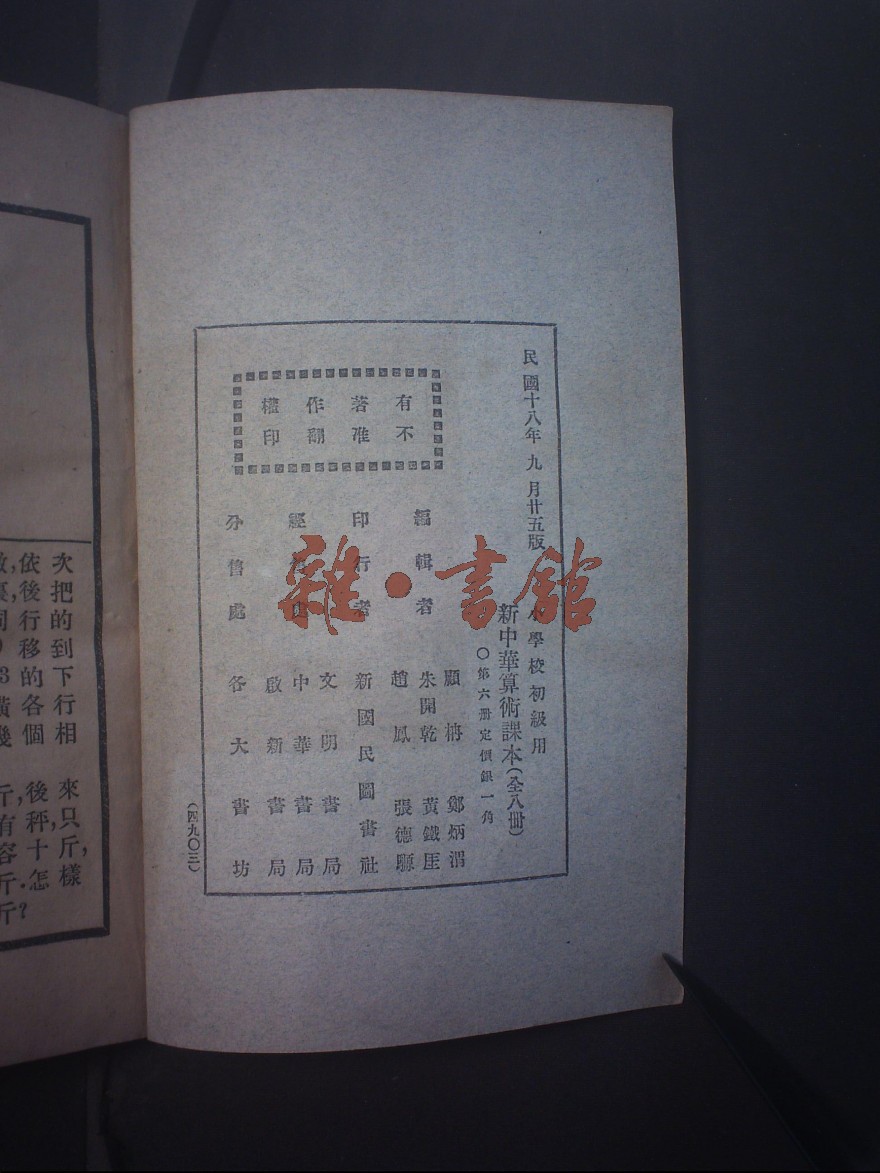 民國十八年九月廿五版
小學校初級用
新中華算術課本(全八冊)
○第六册定價銀一角
編輯者
顧枏 鄭炳渭
朱開乾 黃鐵厓
趙鳳 張德驥
印行者 新國民圖書社
經 文明書局
中華書局
啟新書局
分售處 各大書坊
有不
著准
作翻
權印
(四九〇三)
雜·書館
次把的到下行相
依後行移的各個
來只斤,樣
後秤,十怎
斤?